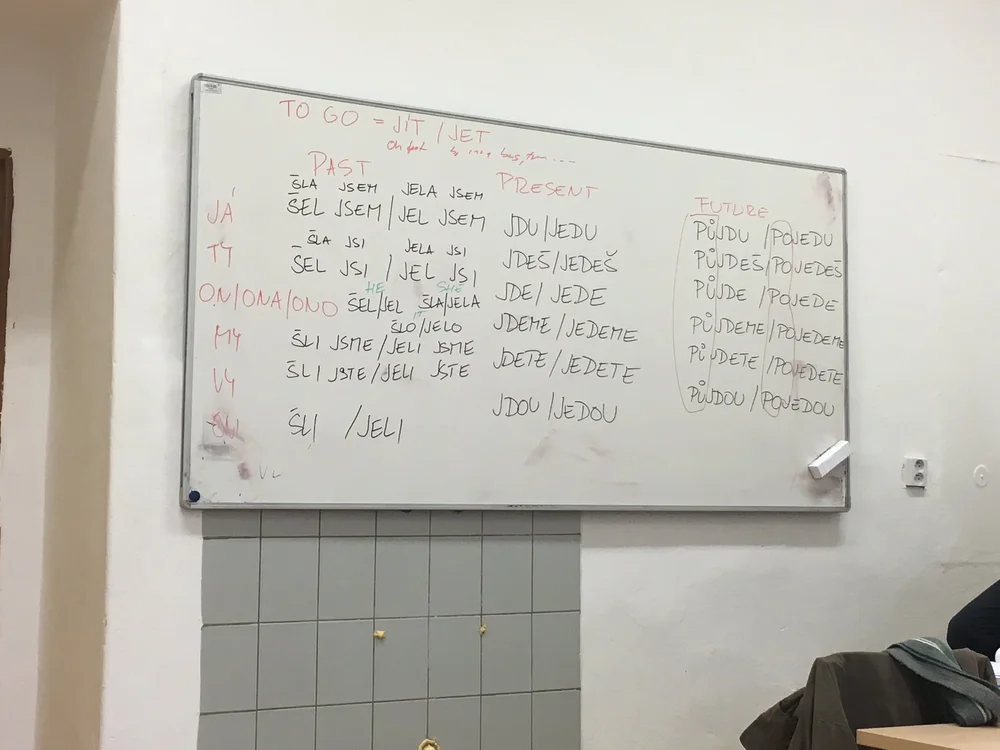 TO GO = JÍT / JET
On foot by car, bus, ...
PAST PRESENT FUTURE
ŠLA JSEM JELA JSEM
JÁ ŠEL JSEM / JEL JSEM JDU / JEDU PŮJDU / POJEDU
ŠLA JSI JELA JSI
TY ŠEL JSI / JEL JSI JDEŠ / JEDEŠ PŮJDEŠ / POJEDEŠ
HE SHE
ON/ONA/ONO ŠEL/JEL ŠLA/JELA JDE / JEDE PŮJDE / POJEDE
IT
ŠLO/JELO
MY ŠLI JSME / JELI JSME JDEME / JEDEME PŮJDEME / POJEDEME
VY ŠLI JSTE / JELI JSTE JDETE / JEDETE PŮJDETE / POJEDETE
ŠLI / JELI JDOU / JEDOU PŮJDOU / POJEDOU